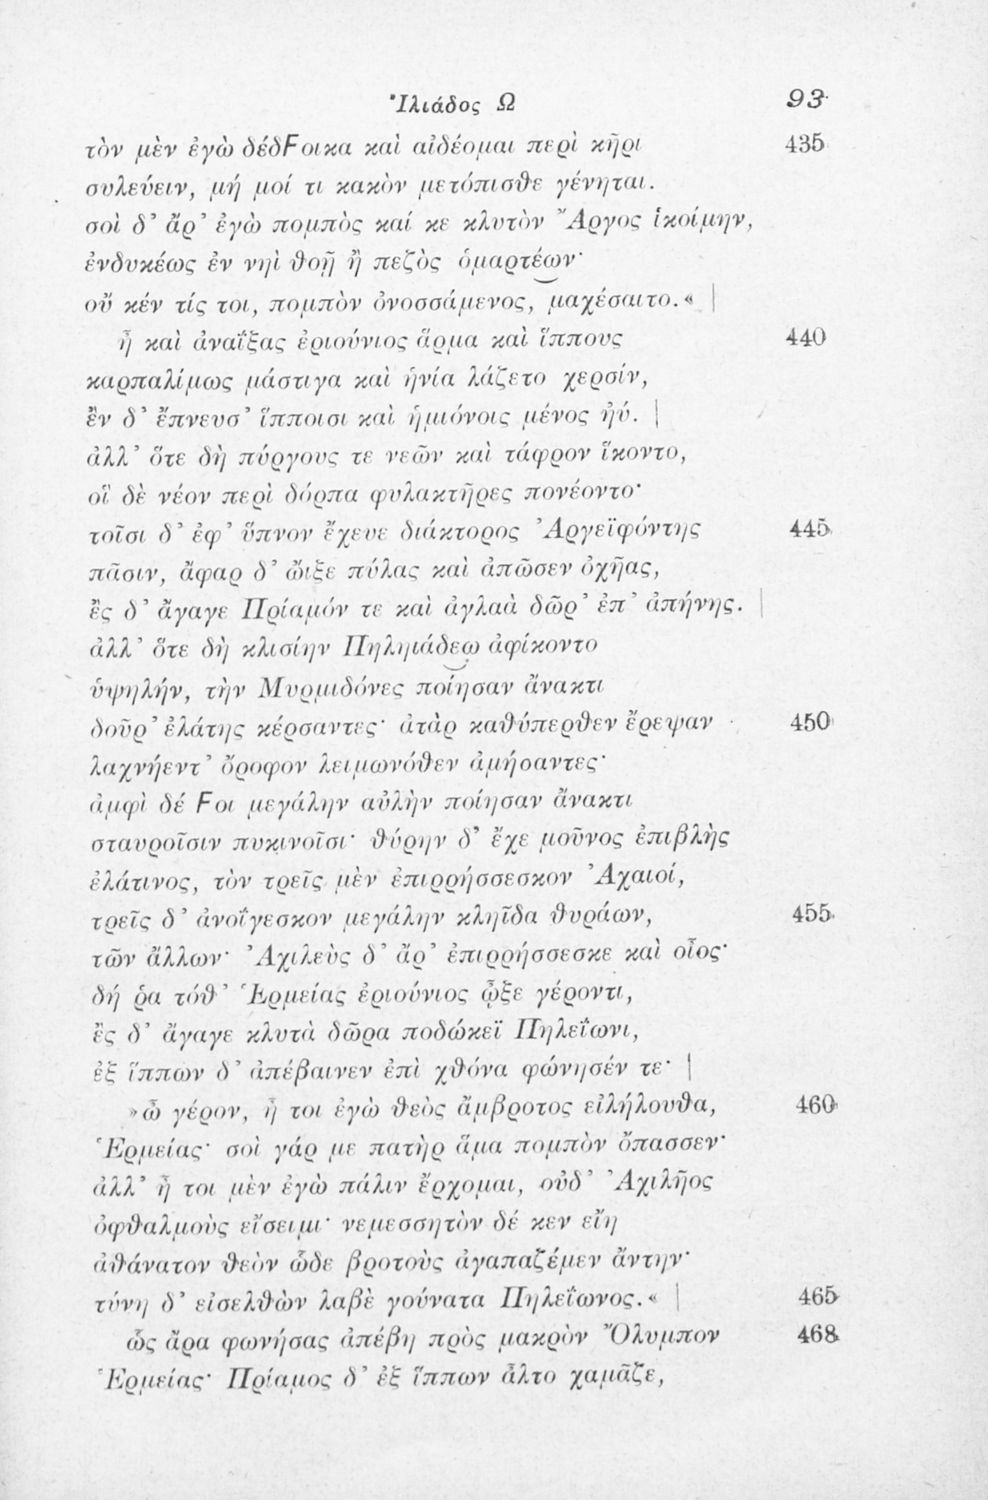 Ἰλιάδος Ω 93
τὸν μὲν ἐγὼ δέδϜοικα καὶ αἰδέομαι περὶ κῆρι 435
συλεύειν, μή μοί τι κακὸν μετόπισθε γένηται.
σοὶ δ᾽ ἂρ᾽ ἐγὼ πομπὸς καί κε κλυτὸν Ἄργος ἱκοίμην,
ἐνδυκέως ἐν νηὶ θοῇ ἢ πεζὸς ὁμαρτέων·
οὔ κέν τίς τοι, πομπὸν ὀνοσσάμενος, μαχέσαιτο.« |
ἦ καὶ ἀναΐξας ἐριούνιος ἅρμα καὶ ἵππους 440
καρπαλίμως μάστιγα καὶ ἡνία λάζετο χερσίν,
ἒν δ᾽ ἔπνευσ᾽ ἵπποισι καὶ ἡμιόνοις μένος ἠύ. |
ἀλλ᾽ ὅτε δὴ πύργους τε νεῶν καὶ τάφρον ἵκοντο,
οἳ δὲ νέον περὶ δόρπα φυλακτῆρες πονέοντο·
τοῖσι δ᾽ ἐφ᾽ ὕπνον ἔχευε διάκτορος Ἀργεϊφόντης 445
πᾶσιν, ἄφαρ δ᾽ ὤιξε πύλας καὶ ἀπῶσεν ὀχῆας,
ἒς δ᾽ ἄγαγε Πρίαμόν τε καὶ ἀγλαὰ δῶρ᾽ ἐπ᾽ ἀπήνης. |
ἀλλ᾽ ὅτε δὴ κλισίην Πηληιάδεω ἀφίκοντο
ὑψηλήν, τὴν Μυρμιδόνες ποίησαν ἄνακτι
δοῦρ᾽ ἐλάτης κέρσαντες· ἀτὰρ καθύπερθεν ἔρεψαν 450
λαχνήεντ᾽ ὄροφον λειμωνόθεν ἀμήσαντες·
ἀμφὶ δέ Ϝοι μεγάλην αὐλὴν ποίησαν ἄνακτι
σταυροῖσιν πυκινοῖσι· θύρην δ᾽ ἔχε μοῦνος ἐπιβλὴς
ἐλάτινος, τὸν τρεῖς μὲν ἐπιρρήσσεσκον Ἀχαιοί,
τρεῖς δ᾽ ἀνοΐγεσκον μεγάλην κληῖδα θυράων, 455
τῶν ἄλλων· Ἀχιλεὺς δ᾽ ἂρ᾽ ἐπιρρήσσεσκε καὶ οἶος·
δή ῥα τόθ᾽ Ἑρμείας ἐριούνιος ᾦξε γέροντι,
ἒς δ᾽ ἄγαγε κλυτὰ δῶρα ποδώκεϊ Πηλεΐωνι,
ἐξ ἵππων δ᾽ ἀπέβαινεν ἐπὶ χθόνα φώνησέν τε· |
»ὦ γέρον, ἦ τοι ἐγὼ θεὸς ἄμβροτος εἰλήλουθα, 460
Ἑρμείας· σοὶ γάρ με πατὴρ ἅμα πομπὸν ὄπασσεν·
ἀλλ᾽ ἦ τοι μὲν ἐγὼ πάλιν ἔρχομαι, οὐδ᾽ Ἀχιλῆος
ὀφθαλμοὺς εἴσειμι· νεμεσσητὸν δέ κεν εἴη
ἀθάνατον θεὸν ὧδε βροτοὺς ἀγαπαζέμεν ἄντην·
τύνη δ᾽ εἰσελθὼν λαβὲ γούνατα Πηλεΐωνος.« | 465
ὣς ἄρα φωνήσας ἀπέβη πρὸς μακρὸν Ὄλυμπον 468
Ἑρμείας· Πρίαμος δ᾽ ἐξ ἵππων ἆλτο χαμᾶζε,